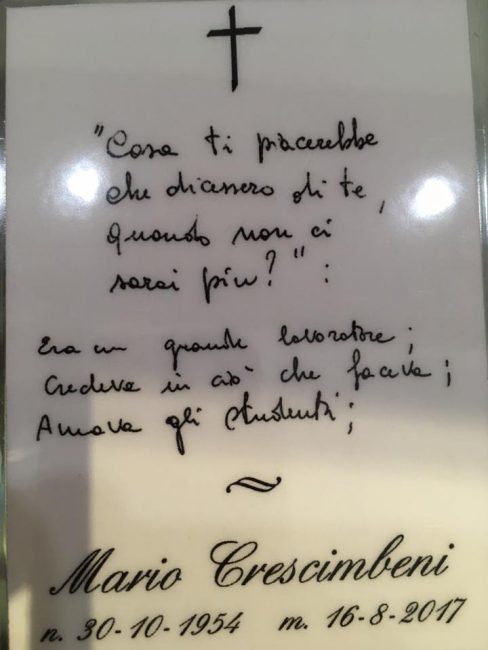 "Cosa ti piacerebbe
che dicessero di te,
quando non ci
sarai più?":
Era un grande lavoratore;
Credeva in ciò che faceva;
Amava gli studenti;
Mario Crescimbeni
n. 30-10-1954 m. 16-8-2017